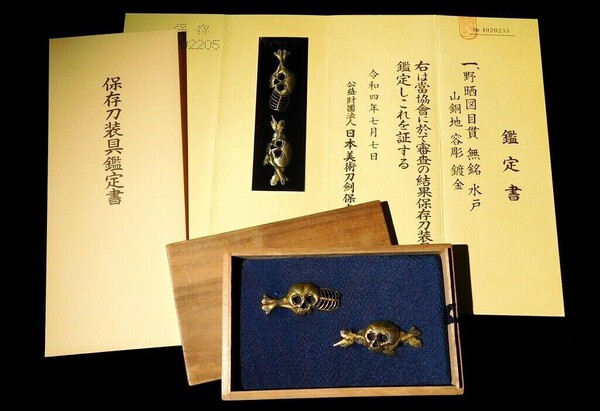 保存刀装具鑑定書
保存
2205
No 4020233
鑑定書
一、野晒図目貫 無銘 水戸
山銅地 容彫 鍍金
右は當協會に於て審査の結果保存刀装
鑑定しこれを証する
令和四年七月七日
公益財團法人 日本美術刀劍保